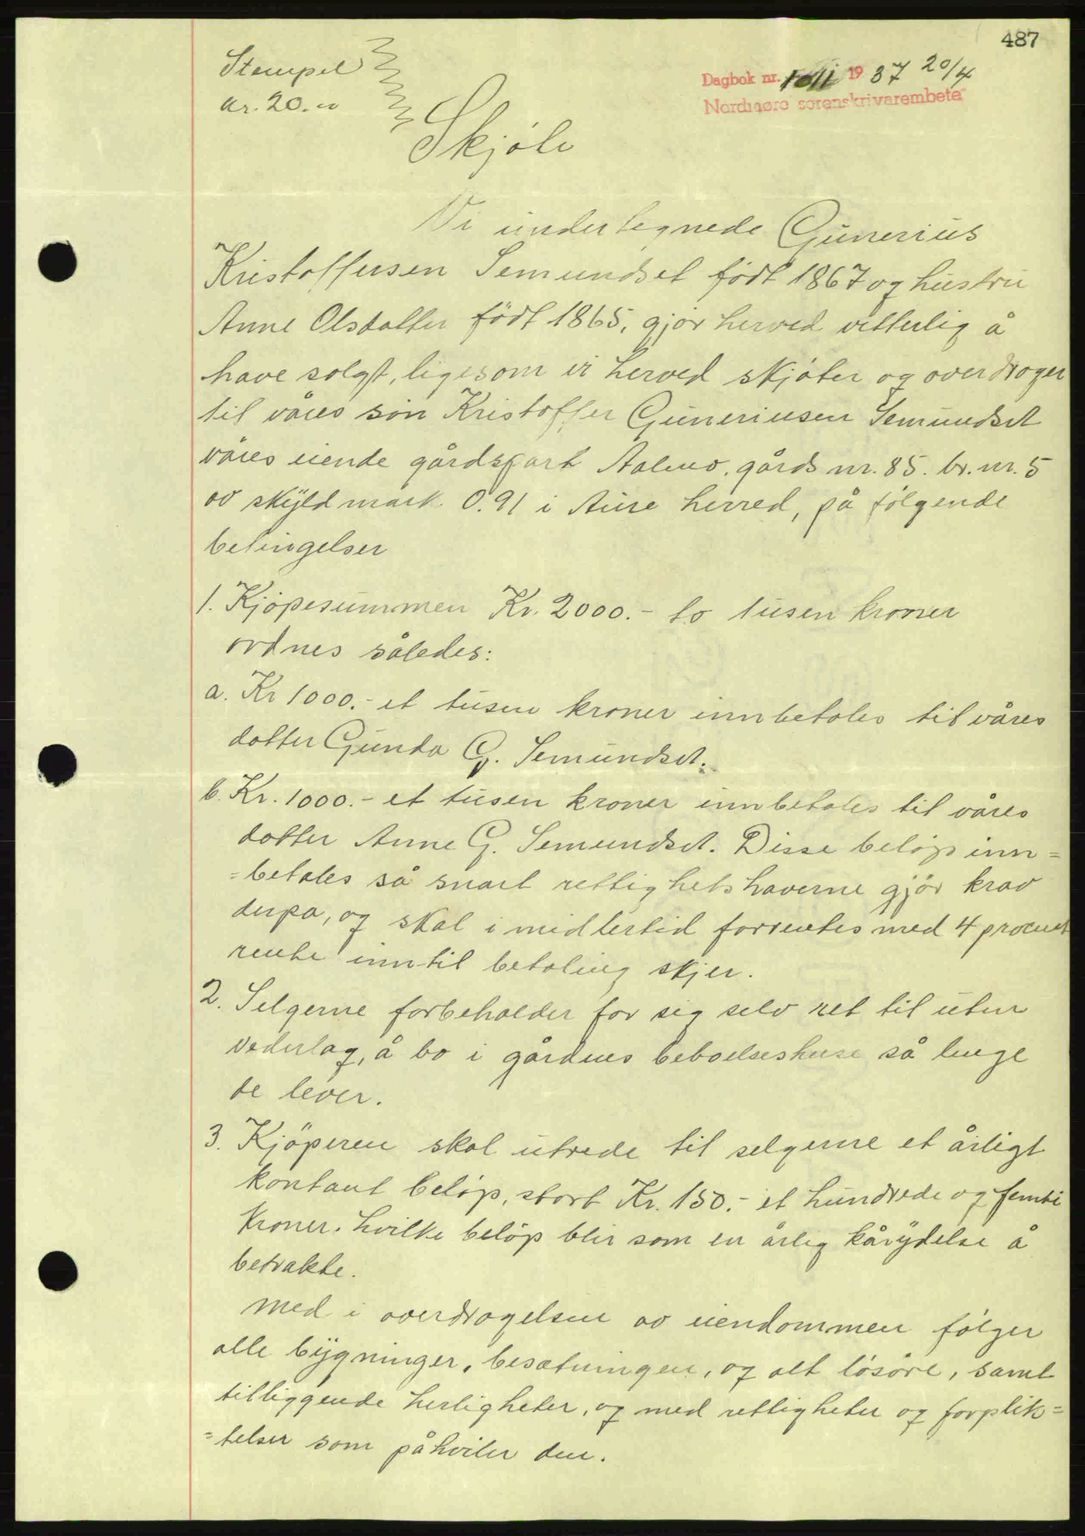 487
Stempel
kr. 20.00
Dagbok nr. 1011 1937 20/4
Nordmøre sorenskrivarembete
Skjöte
Vi undertegnede Gunerius
Kristoffersen Semundset födt 1867 og hustru
Anne Olsdatter födt 1865, gjör herved vitterlig å
have solgt, ligesom vi herved skjöter og overdrager
til våres sön Kristoffer Guneriusen Semundset
våres eiende gårdspart Aalmo, gårds nr. 85. br. nr. 5
av skyldmark 0.91 i Aure herred, på fölgende
betingelser
1. Kjöpesummen Kr. 2000.- to tusen kroner
ordnes således:
a. Kr 1000.- et tusen kroner innbetales til våres
datter Gunda G. Semundset.
b. Kr. 1000.- et tusen kroner innbetales til våres
datter Anne G. Semundset. Disse belöp inn=
=betales så snart rettighetshaverne gjör krav
derpa, og skal i midlertid forrentes med 4 procent
rente inntil betaling skjer.
2. Selgerne forbeholder for sig selv ret til uten
vederlag, å bo i gårdens beboelseshuse så lenge
de lever.
3. Kjöperen skal utrede til selgerne et årligt
kontant belöp, stort Kr. 150.- et hundrede og femti
kroner. hvilke belöp blir som en årlig kårydelse å
betrakte.
Med i overdragelsen av eiendommen fölger
alle bygninger, besætningen, og alt lösöre, samt
tilliggende herligheter, og med rettigheter og forplik=
=telser som påhviler den.